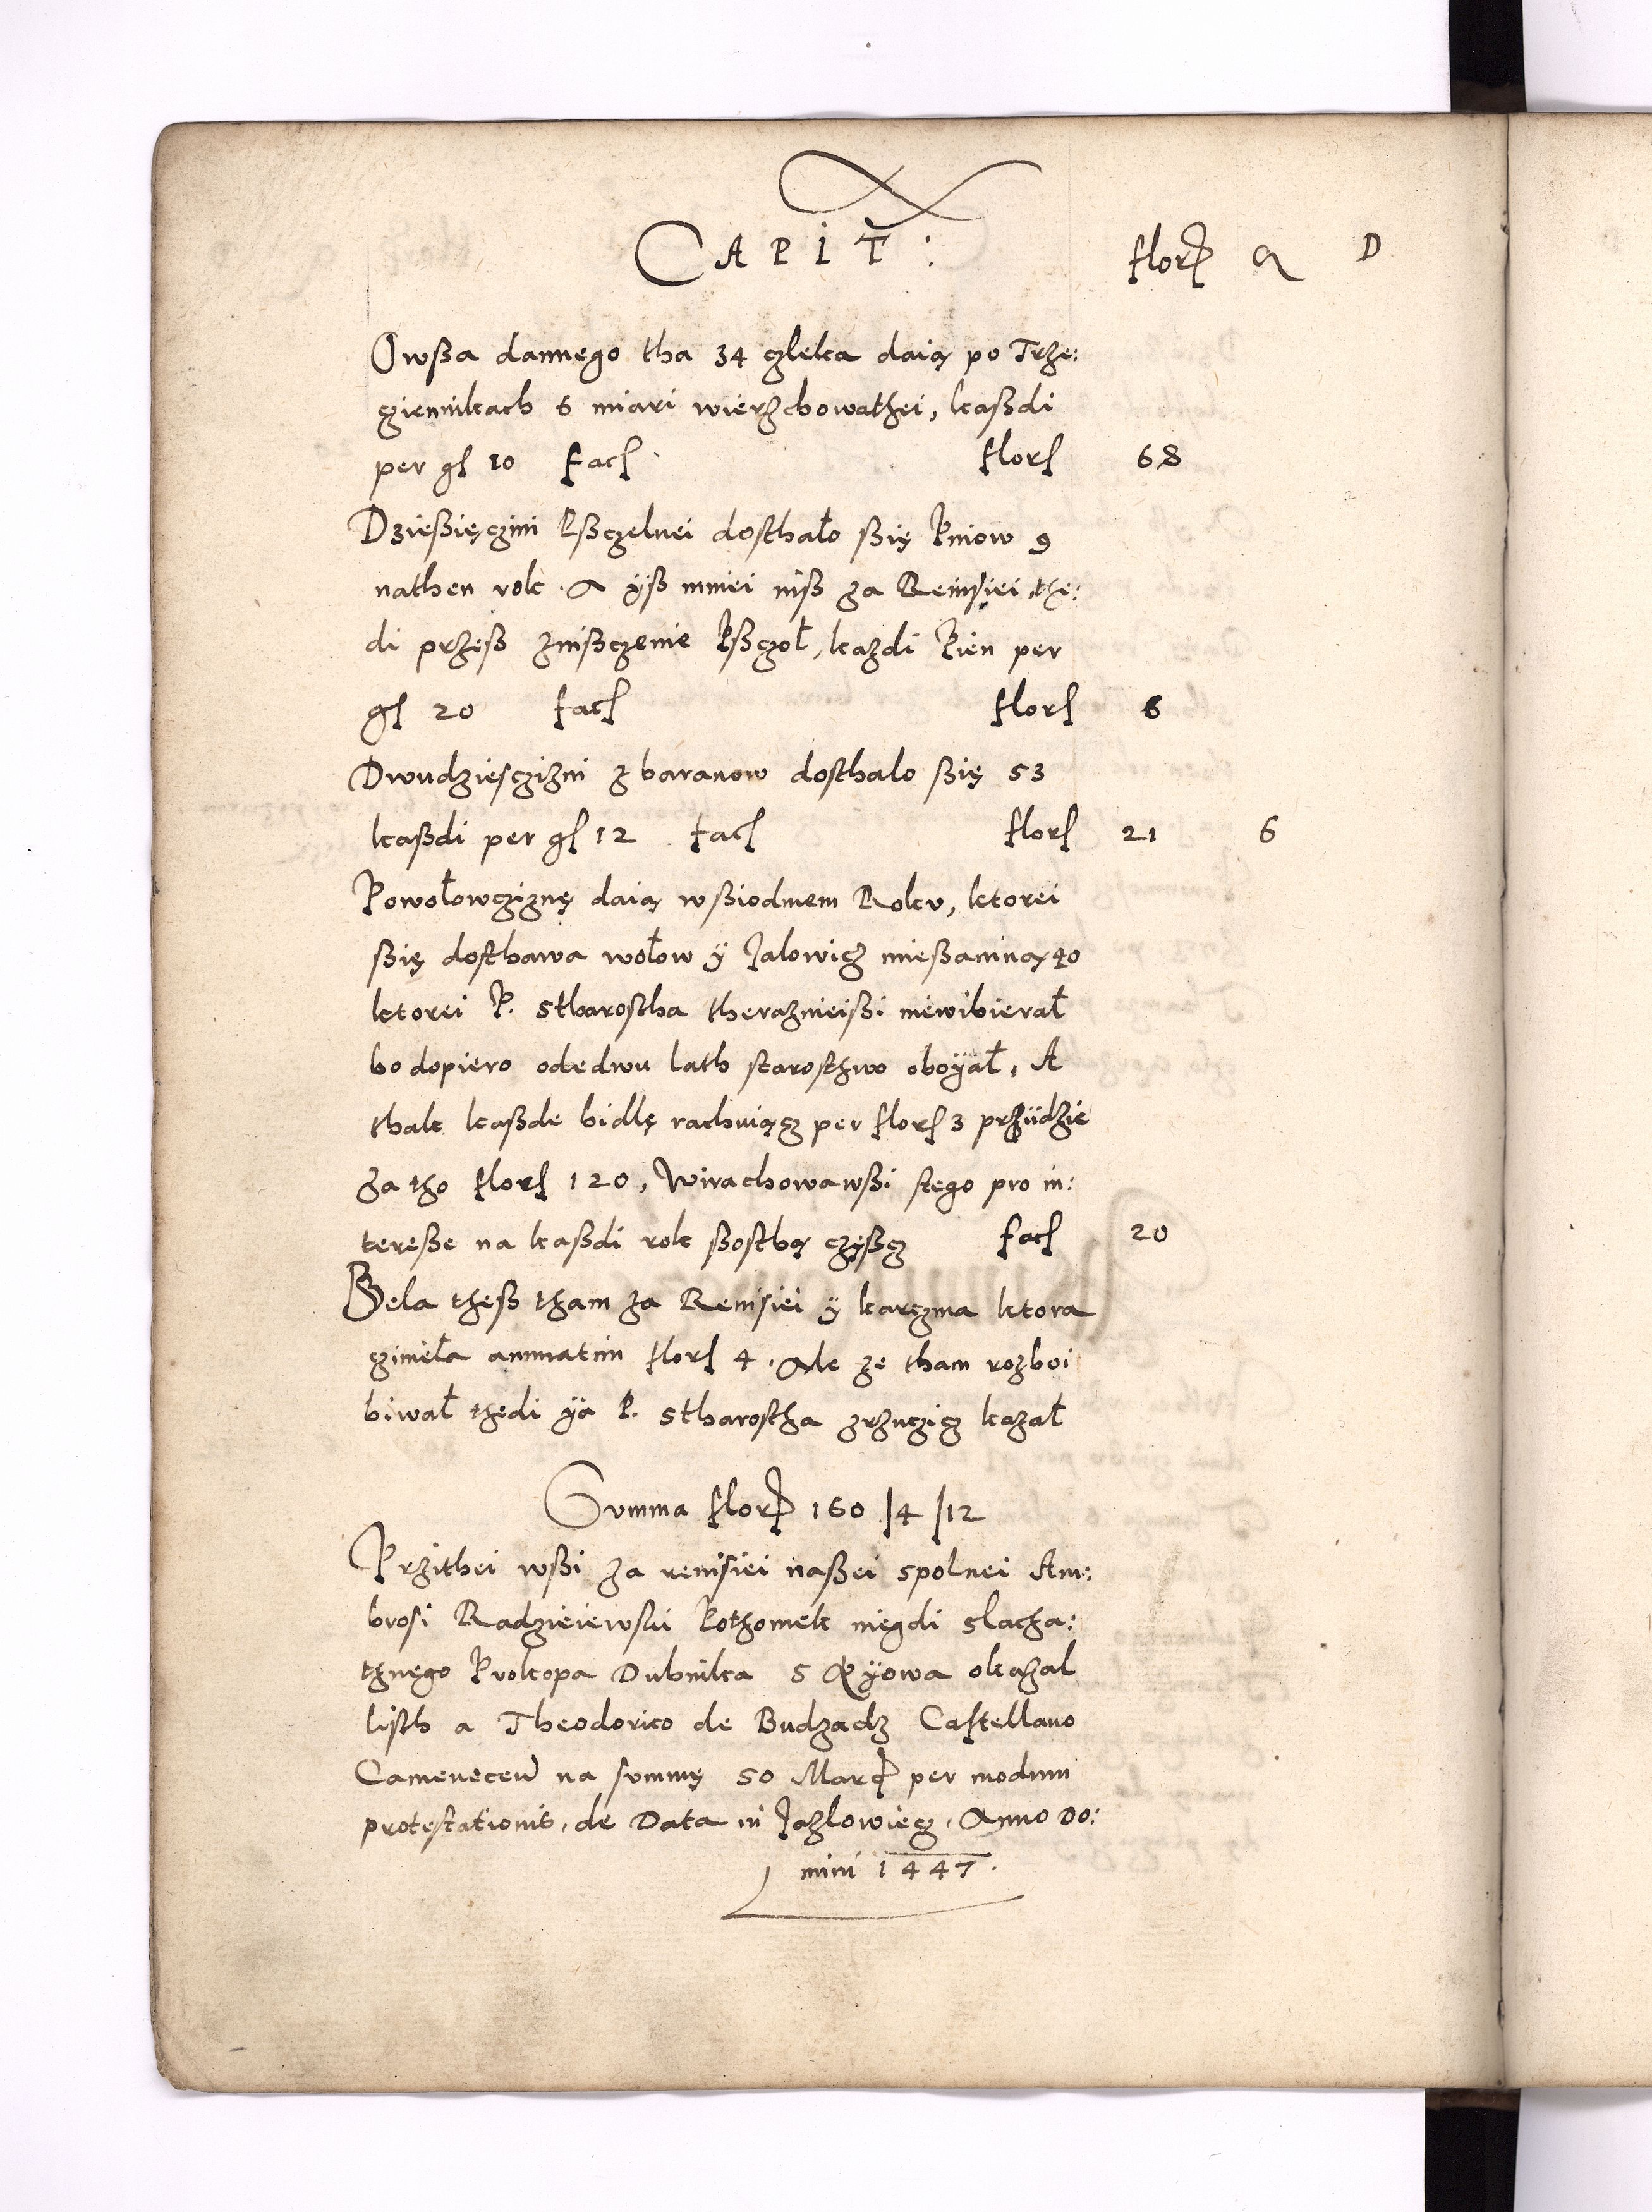 CAPIT: flor G D
Owßa dannego tha 34 czleka daią po Trze:
ziennikach 6 miari wierzchowathei, kaßdi
per gſ 10 facſ florſ 68
Dzießięczini Pßczelnei dosthało ßię Pniow 9
nathen rok. A yß mniei niß za Reuisiei, the:
di przeß znißczenie Pßczoł, kazdi Pien per
gſ 20 facſ florſ 6
Dwudziesczizni z baranow dosthalo ßię 53
kaßdi per gſ 12 facſ florſ 21 6
Powołowcziznę daią wßiodmem Roku, ktorei
ßię dosthawa wołow ÿ Jalowicz mießaniną 40
ktorei P. stharostha therazniei­ßi niewibierał
bo dopiero odedwu lath starosthwo oboÿał, A
thak kaßde bidlę rachuiącz per florſ 3 przÿdzie
za tho florſ 120, Wirachowawßi stego pro in:
tereße na kaßdi rok ßosthą częßcz facſ 20
Bela theß tham za Reuisiei ÿ karczma ktora
czinieła annuatim florſ 4. Ale ze tham rozboi
biwał thedi ÿa P. stharostha zrzuczicz kazał
Summa flor 160 /4 /12
Przithei wßi za reuisiei naßei spolnei Am:
brosi Radzieiewski Pothomek niegdi slacha:
thnego Prokopa Dubnika s Kÿowa okazal
listh a Theodorico de Budzadz Castellano
Cameneceñ na summę 50 Marc per modum
protestationis, de Data in Jazlowiecz, Anno Do:
mini 1447.